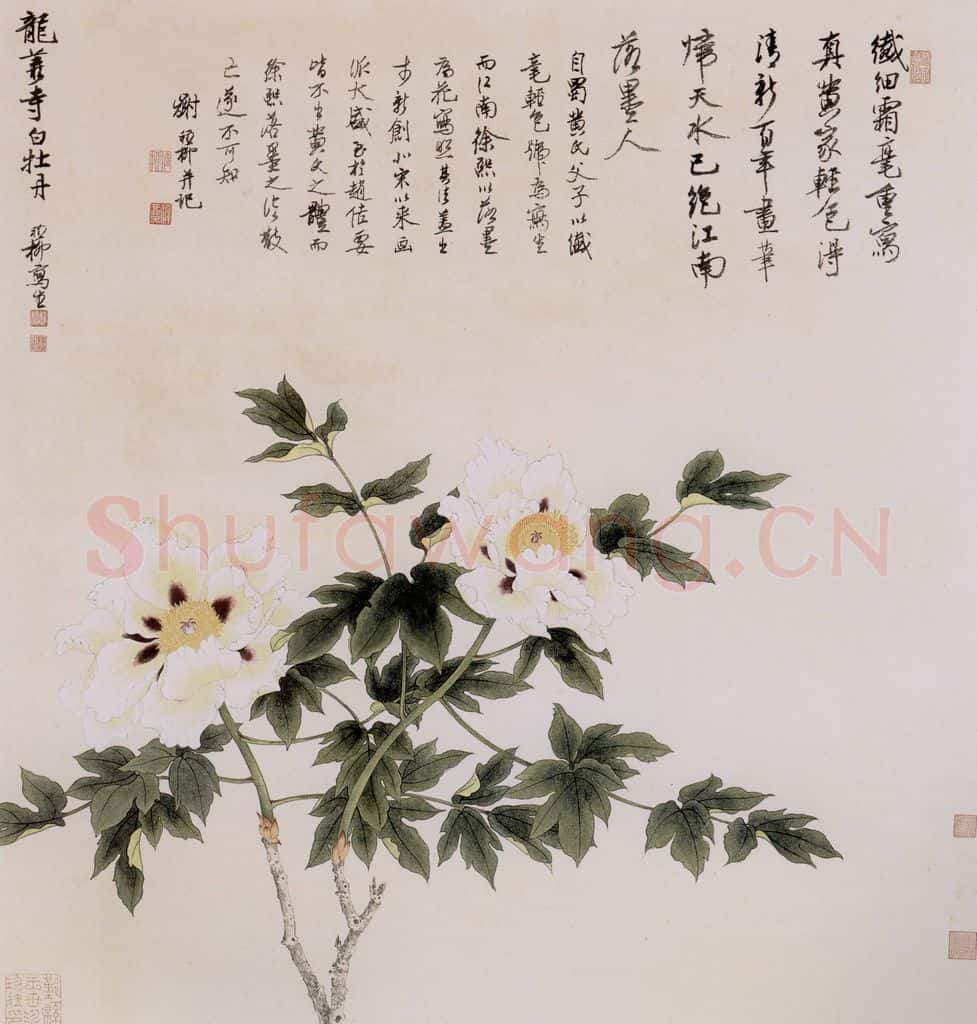 纖細霜毫重寫
真黄家輕色得
清新百年畫筆
歸天水已絕江南
落墨人
自蜀黄氏父子以纖
毫輕色號為寫生
而江南徐熙以落墨
為花寫照其法蓋出
新創北宋以來画
派大盛至於趙佶要
皆不出黄之體而
徐熙落墨之法散
亡遂不可知
謝稚柳并記
龍華寺白牡丹 稚柳寫生
Shufawang.CN